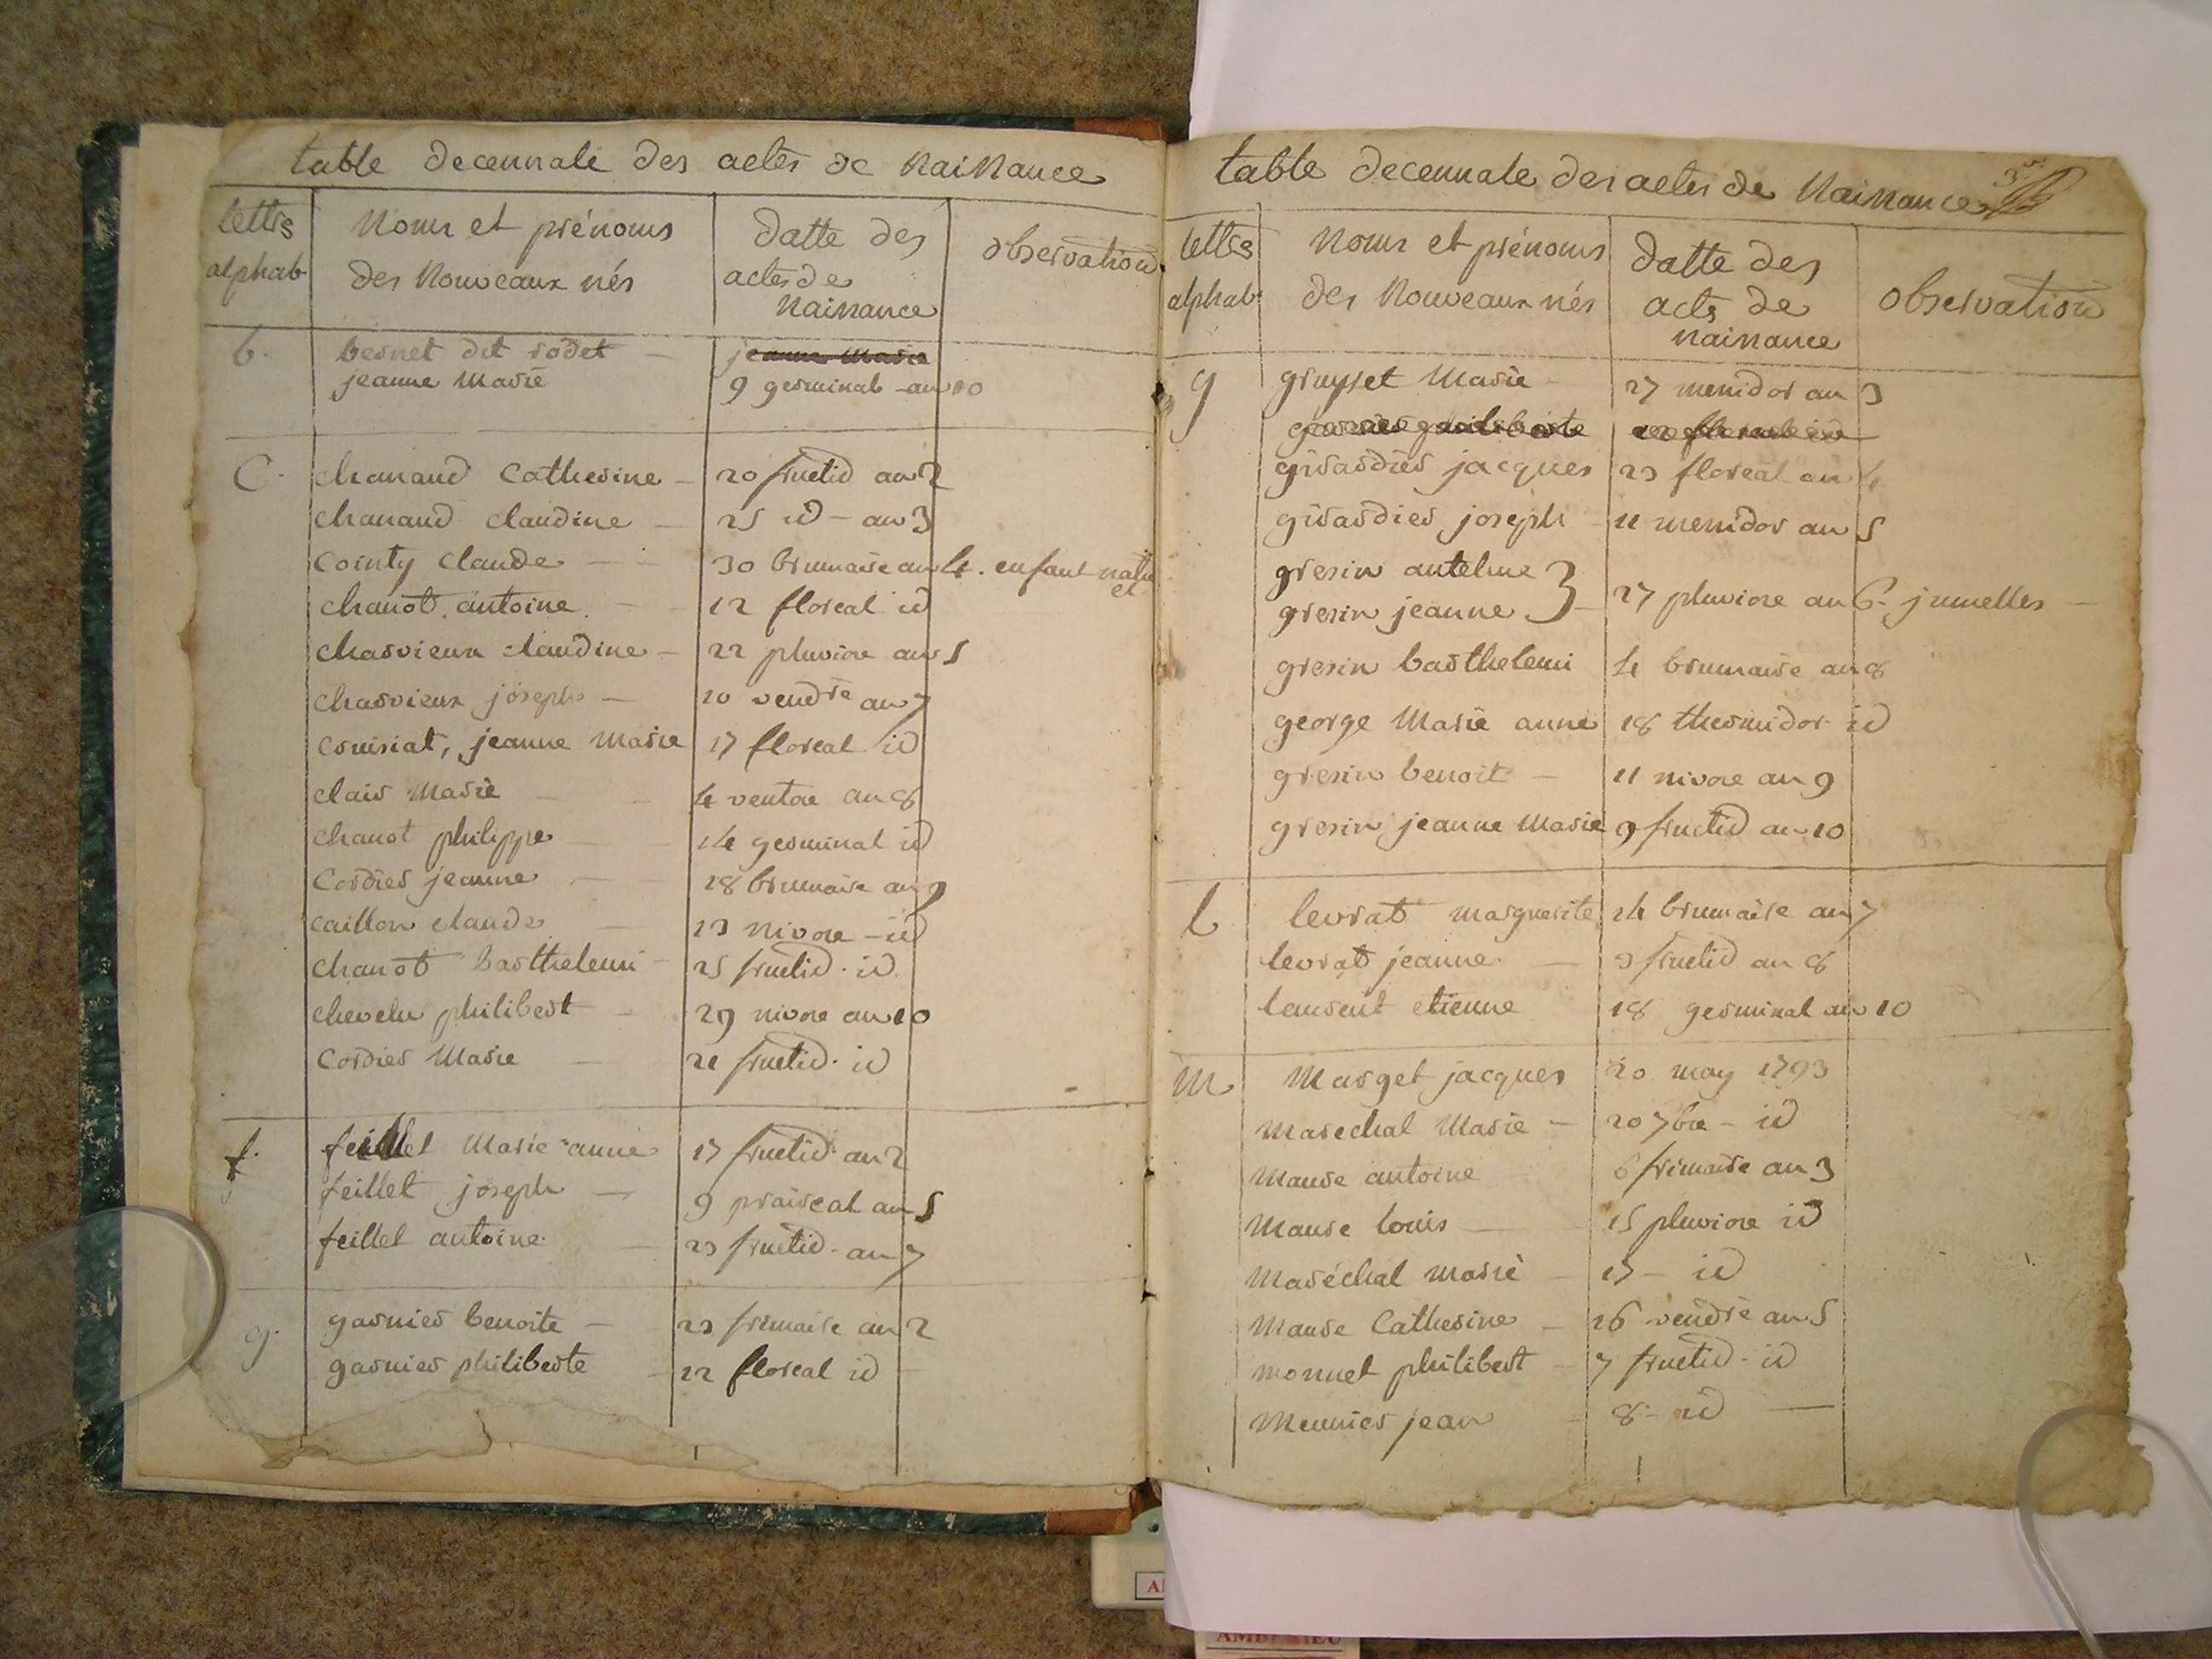 table decennale des actes de Naissance
lettre
alphab.
Noms et prénoms
des Nouveaux nés
datte des
actes de
naissance
observation
b. bernet dit rodet — jeanne marie
jeanne Marie 9 germinal an 10
C. chanaud Catherine — 20 fructid an 2
chanaud claudine — 25 id — an 3
Cointy Claude — 30 brumaire an 4. enfant natu
el
chanot antoine. — 12 floreal id
charvieux claudine — 22 pluviose an 5
charvieux joseph — 10 vendre an 7
cruisiat, jeanne Marie 17 floreal id
clair Marie — 4 ventose an 8
chanot philippe — 14 germinal id
Cordier jeanne — 28 brumaire an 9
caillon claude — 23 Nivose — id
chanot Barthelemi — 25 fructid. id
chevelu philibert — 29 nivose an 10
Cordier Marie — 21 fructid. id
f. feillet Marie anne 17 fructid an 2
feillet joseph — 9 prairéal an 5
feillet antoine. — 23 fructid. an 7
g. garnier benoite — 23 frimaire an 2
garnier philiberte — 22 floreal id —
table decennale des actes de Naissance
lettre
alphab.
Noms et prénoms
des Nouveaux nés
datte des
acts de
naissance
observation
g gruyset Marie — 27 messidor an 3
garnier philiberte
girardier jacques 23 floreal an 4
girardier joseph — 11 messidor an 5
gresin antelme }
gresin jeanne } — 27 pluviose an 6. jumelles —
gresin barthelemi 4 brumaire an 8
george Marie anne 18 thermidor id
gresin benoit — 11 nivose an 9
gresin jeanne Marie 9 fructid an 10
l levrat marguerite 14 brumaire an 7
levrat jeanne. — 3 fructid an 8
laurent etienne 18 germinal an 10
M Marget jacques 20 may 1793
Marechal Marie — 20 7bre — id
Maure antoine 6 frimaire an 3
Maure louis — 15 pluviose id
Maréchal marie — 17 — id
Maure Catherine — 26 vendre an 5
monnet philibert — 7 fructid. id
Meunier jean 8 — id —